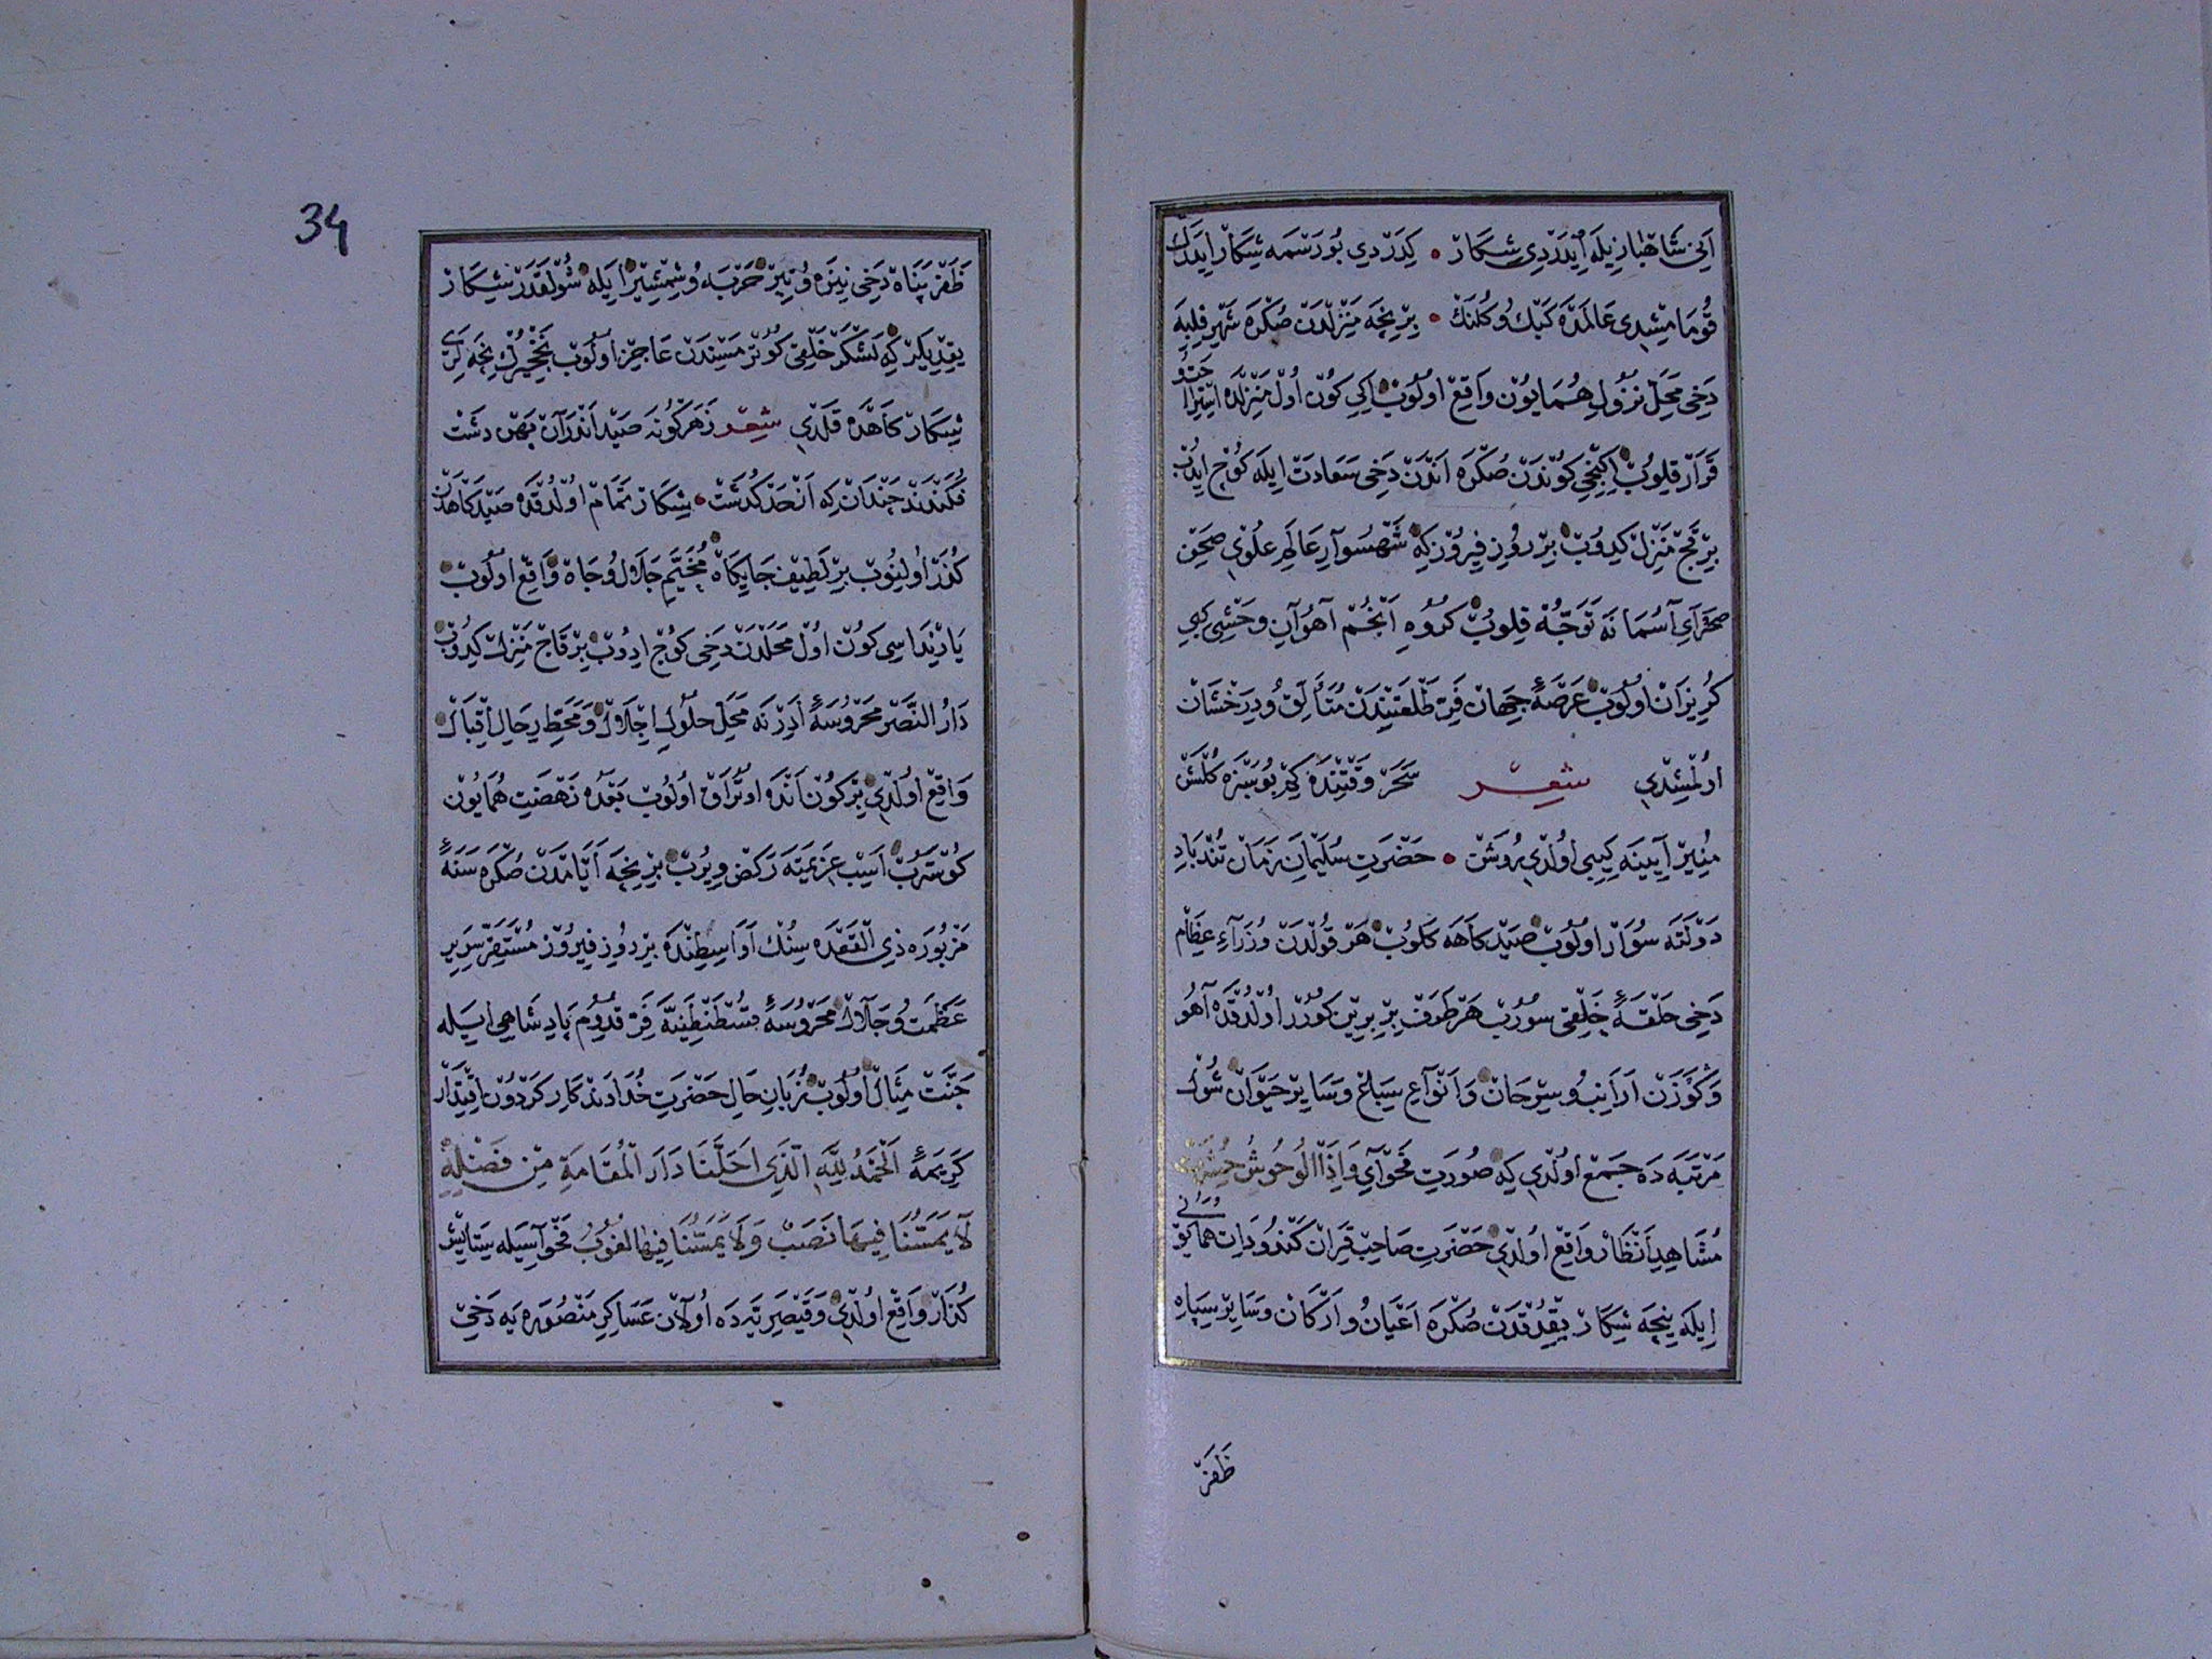 اَنی شَاهْبَازِیلَه اِیدَرْدِی شِكَارْ • كِدَرْدی بُورَسْمَه شِكَارْ اِیدَرَكْ
قُومَامِشِدی عَالَمْدَه كَبْك وُ كُلَنْكْ • بِرْ نِیجَه مَنْزِلْدَنْ صُكْرَه شَهْرِ فِلِبَه
دَخِی مَحَلِّ نُزُولِ هُمَایُونْ وَاقِعْ اُولُوبْ اِكِی كُونْ اُولْ مَنْزِلْدَه
قَرَارْ قِلُوبْ اِكِنْجِی كُونْدَنْ صُكْرَه اَنْدَنْ دَخِی سَعَادَتْ اِیلَه كُوچْ ایدُبْ
بِرْ قَچْ مَنْزِلْ كِدُوبْ بِرْ رُوزِ فِیرُوزْ كِه شَهْسُوَارِ عَالَمِ عُلْوِی صَحْنِ
صَحْرَایِ آسُمَانَه تَوَجُّه قِلُوبْ كُرُوهِ اَنْجُمْ آهُوَانِ وَحْشِی كِبِی
كُرِیزَانْ اُولُوبْ عَرْصَهٔ جِهَانْ فَرِّ طَلْعَتِنْدَنْ مُتَأَلِّقْ وُ دِرَخْشَانْ
اُولْمِشِدِی شِعِرْ سَحَرْ وَقْتِنْدَه كِمْ بُو سَبْزَه كُلْشَنْ
مُنِیرْ آیِینَه كِبِی اُولْدِی رُوشَنْ • حَضْرَتِ سُلَیْمَانِ زَمَانْ تُنْدْبَادِ
دَوْلَتَه سُوَارْ اُولُوبْ صَیْدْكَاهَه كَلُوبْ هَرْ قُولْدَنْ وُزَرَاءِ عِظَامْ
دَخِی حَلْقَهٔ خَلْقِی سُورُبْ هَرْ طَرَفْ بِرْ بِرِینْ كُورُرْ اُولْدُقْدَه آهُو
وَ كَوَزْن اَرَانِب وُ سِرْحَانْ وَ اَنْوَاعِ سِبَاعْ وَ سَایِرْ حَیَوَانْ شُولْ
مَرْتَبَه دَه جَمْعْ اُولْدِی كِه صُورَتِ فَحْوَایِ وَاِذَا الْوُحُوشُ حُشِرَتْ
مُشَاهِدِ اَنْظَارْ وَاقِعْ اُولْدِی حَضْرَتِ صَاحِبْ قِرَانْ كَنْدُو ذَاتِ هُمَایُونْ
اِیلَه نِیجَه شِكَارْ یِقْدُقْدَنْ صُكْرَه اَعْیَانُ وَ اَرْكَانْ وَ سَایِرْ سِپَاهِ
ظَفَرْ
34
ظَفَرْ پَنَاهْ دَخِی نِیزَه وُ تِیرْ حَرْبَه وُ شِمْشِیرْ اِیلَه شُولْقَدَرْ شِكَارْ
یِقْدِیلَرْ كِه لَشْكَرْ خَلْقِی كُوتُرْمَسِنْدَنْ عَاجِزْ اُولُوبْ نَخْچِیرُكْ نِیجَه لَرِی
شِكَارْكَاهْدَه قَلْدِی شِعِرْ زَهَرْكُونَه صَیْد اَنْدَرَانْ پَهْن دَشْت
فَكَنْدَنْد چَنْدَان كِه اَزْ حَدْ كُذَشْتْ • شِكَارْ تَمَامْ اُولْدُقْدَه صَیْدْكَاهْدَنْ
كُذَرْ اُولِنُوبْ بِرْ لَطِیفْ جَایِكَاهْ مُخَیَّمِ جَلَالُ وَ جَاهْ وَاقِعْ اُولُوبْ
یَارِنْدَاسِی كُونْ اُولْ مَحَلْدَنْ دَخِی كُوچْ ادُوبْ بِرْ قَاچْ مَنْزِلْ كِدُوبْ
دَارُ النَّصْرْ مَحْرُوسَهٔ اَدِرْنَه مَحَلِّ حُلُولِ اِجْلَالْ وَ مَحَطِّ رِحَالِ اِقْبَالْ
وَاقِعْ اُولْدِی بِرْ كُونْ اَنْدَه اُوتُرَاقْ اُولُوبْ بَعْدَه نَهْضَتِ هُمَایُونْ
كُوسْتَرُبْ اَسْبِ عَزِیمَتَه رَكْضْ وِیرُبْ بِرْ نِیجَه اَیَّامْدَنْ صُكْرَه سَنَهٔ
مَزْبُورَه ذِی الْقَعْدَه سِنُكْ اَوَاسِطِنْدَه بِرْ رُوزِ فِیرُوزْ مُسْتَقَرِّ سَرِیرِ
عَظَمَتُ وَ جَلَالْ مَحْرُوسَهٔ قُسْطَنْطِنِیَّه فَرِّ قُدُومِ پَادِشَاهِی اِیسَیلَه
جَنَّتْ مِثَالْ اُولُوبْ زُبَانِ حَالِ حَضْرَتِ خُدَاوَنْدْكَارِ كَرْدُونْ اِقْتِدَارْ
كَرِیمَهٔ اَلْحَمْدُ لِلّٰهِ الَّذِی اَحَلَّنَا دَارَ الْمُقَامَةِ مِنْ فَضْلِهِ
لَا یَمَسُّنَا فِیهَا نَصَبٌ وَلَا یَمَسُّنَا فِیهَا لُغُوبٌ فَحْوَاسِیلَه سِتَایِشْ
كُذَارْ وَاقِعْ اُولْدِی وَ قَیْصَرِیَّه دَه اُولَانْ عَسَاكِرِ مَنْصُورَه یَه دَخِی